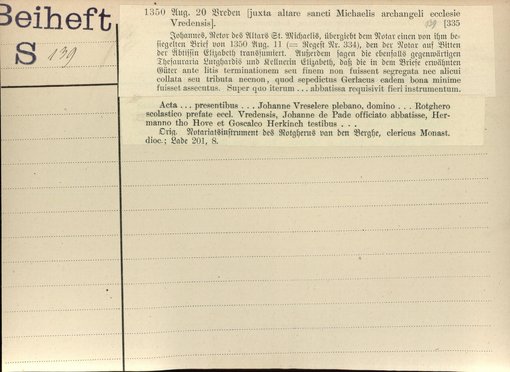 Beiheft
S 139
1350 Aug. 20 Vreden [juxta altare sancti Michaelis archangeli ecclesie
Vredensis]. 139 [335
Johannes, Rektor des Altars St. Michaelis, übergiebt dem Notar einen von ihm be-
siegelten Brief von 1350 Aug. 11 (= Regest Nr. 334), den der Notar auf Bitten
der Äbtissin Elizabeth transsumiert. Außerdem sagen die ebenfalls gegenwärtigen
Thesauraria Lutghardis und Kellnerin Elizabeth, daß die in dem Briefe erwähnten
Güter ante litis terminationem seu finem non fuissent segregata nec alicui
collata seu tributa necnon, quod sepedictus Gerlacus eadem bona minime
fuisset assecutus. Super quo iterum ... abbatissa requisivit fieri instrumentum.
Acta ... presentibus ... Johanne Vreselere plebano, domino ... Rotghero
scolastico prefate eccl. Vredensis, Johanne de Pade officiato abbatisse, Her-
manno tho Hove et Goscalco Herkinch testibus ...
Orig. Notariatsinstrument des Rotgherus van den Berghe, clericus Monast.
dioc.; Lade 201, 8.